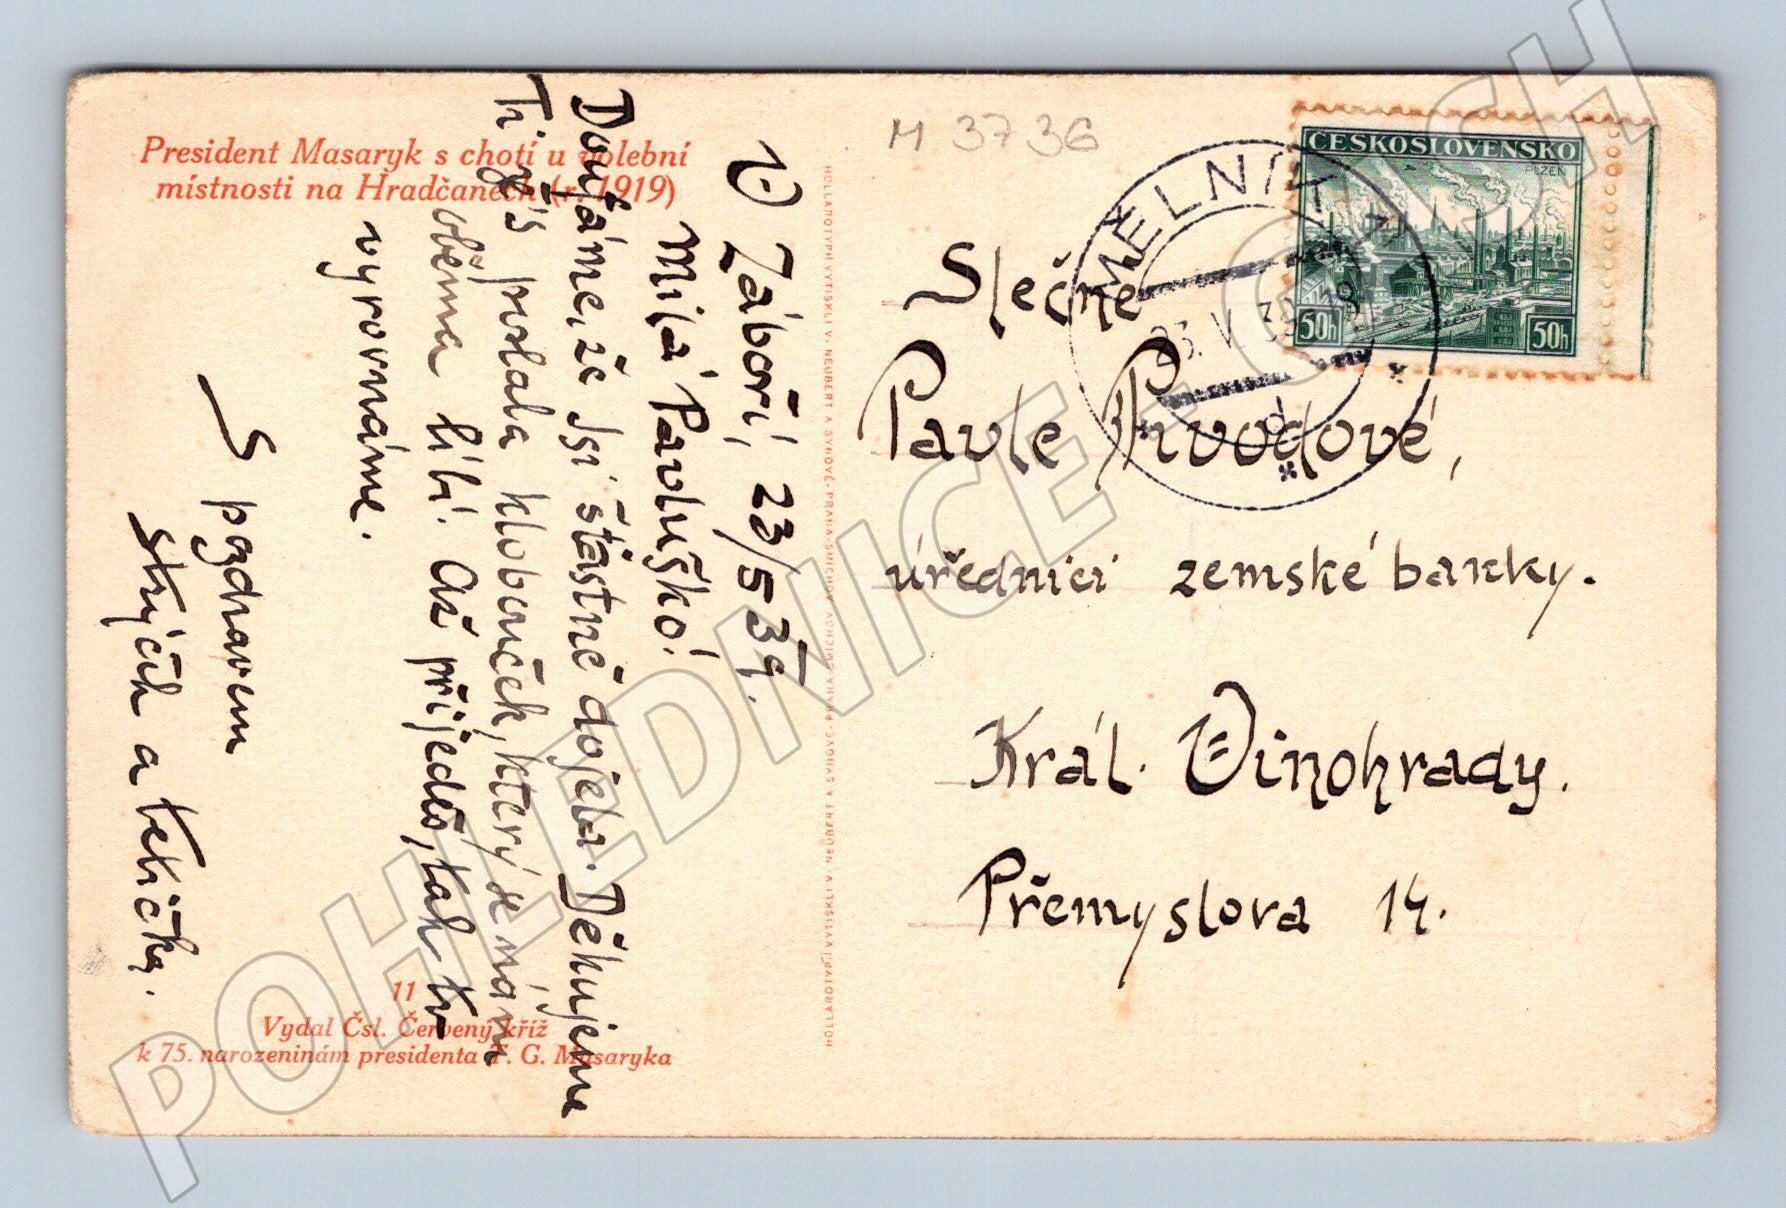 President Masaryk s chotí u volební
místnosti na Hradčanech (r. 1919)
V Záboří, 23/5 39.
Milá Pavluško!
Doufáme, že jsi šťastně dojela. Děkujeme
Ti, žes poslala klobouček, který se nám
oběma líbí. Až přijedeš, tak to
vyrovnáme.
S pozdravem
strýček a tetička.
11
Vydal Čsl. Červený kříž
k 75. narozeninám presidenta T. G. Masaryka
HOLLAROTYPII VYTISKLI V. NEUBERT A SYNOVÉ - PRAHA-SMÍCHOV
M 3736
ČESKOSLOVENSKO
PLZEŇ
50h
50h
MĚLNÍK
23. V. 39
d
Slečně
Pavle Pivodové,
úřednici zemské banky.
Král. Vinohrady.
Přemyslova 14.
POHLEDNICE-OLDRICH